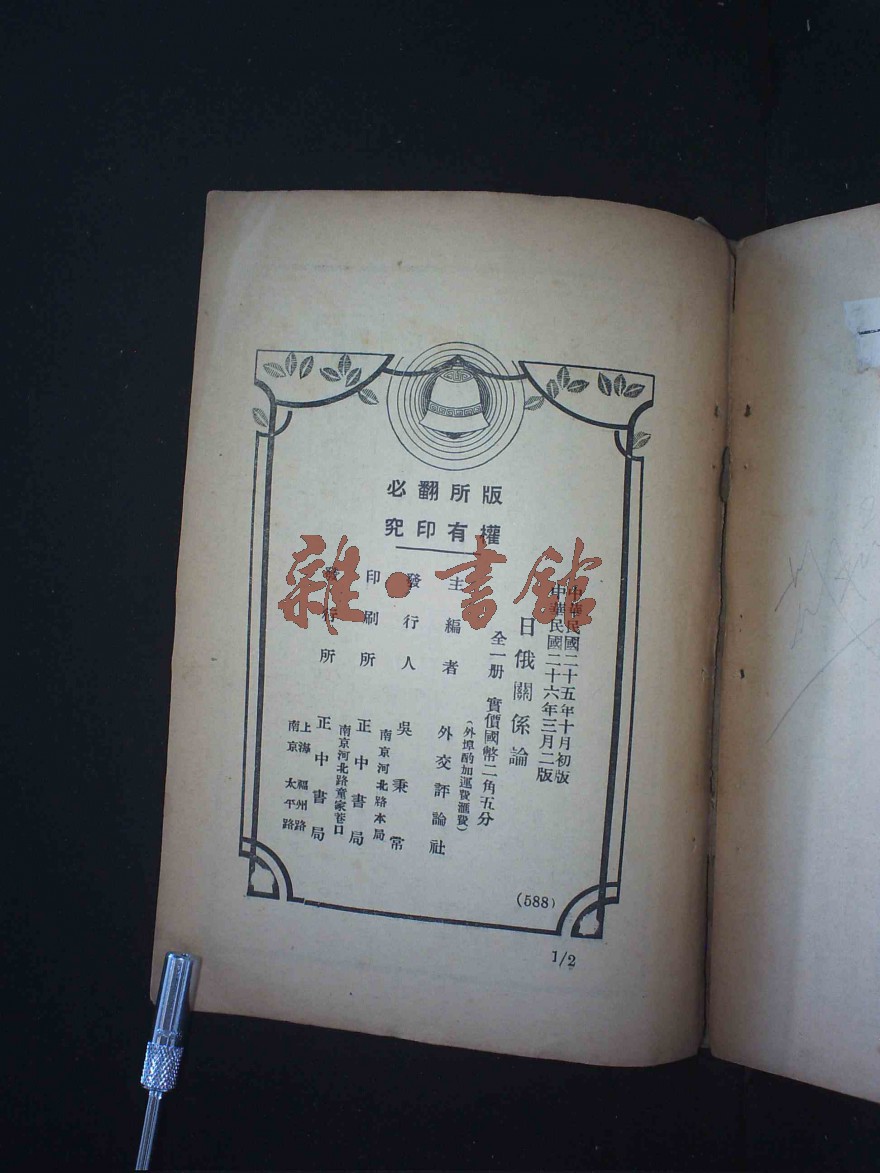 版權所有翻印必究
中華民國二十五年十月初版
中華民國二十六年三月二版
日俄關係論
全一册 實價國幣二角五分
(外埠酌加運費滙費)
主編者 外交評論社
發行人 吳秉常
南京河北路本局
印刷所 正中書局
南京河北路童家巷口
發行所 正中書局
上海 福州路
南京 太平路
(588)
1/2
雜·書館